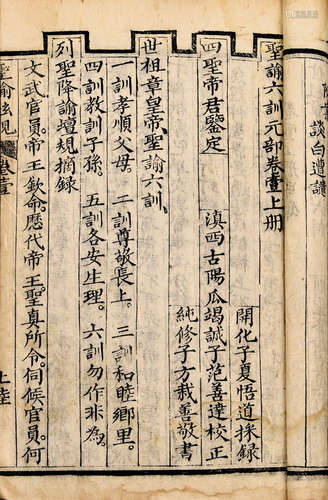 談白遭譴
聖諭六訓元部卷壹上册
開化子夏悟道採錄
四聖帝君鑒定
滇西古陽瓜竭誠子范善達校正
純修子方栽善敬書
世祖章皇帝聖諭六訓
一訓孝順父母。二訓尊敬長上。三訓和睦鄉里。
四訓教訓子孫。五訓各安生理。六訓勿作非為。
列聖降諭壇規摘録
文武官員。帝王欽命。歷代帝王聖真所令。伺候官員。何
聖諭
上陸